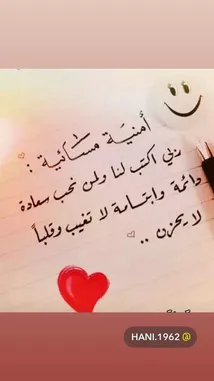 أمنية مسائية :
ربي اكتب لنا ولمن نحب سعادة
دائمة وابتسامة لا تغيب وقلباً
لا يحزن ..
HANI.1962